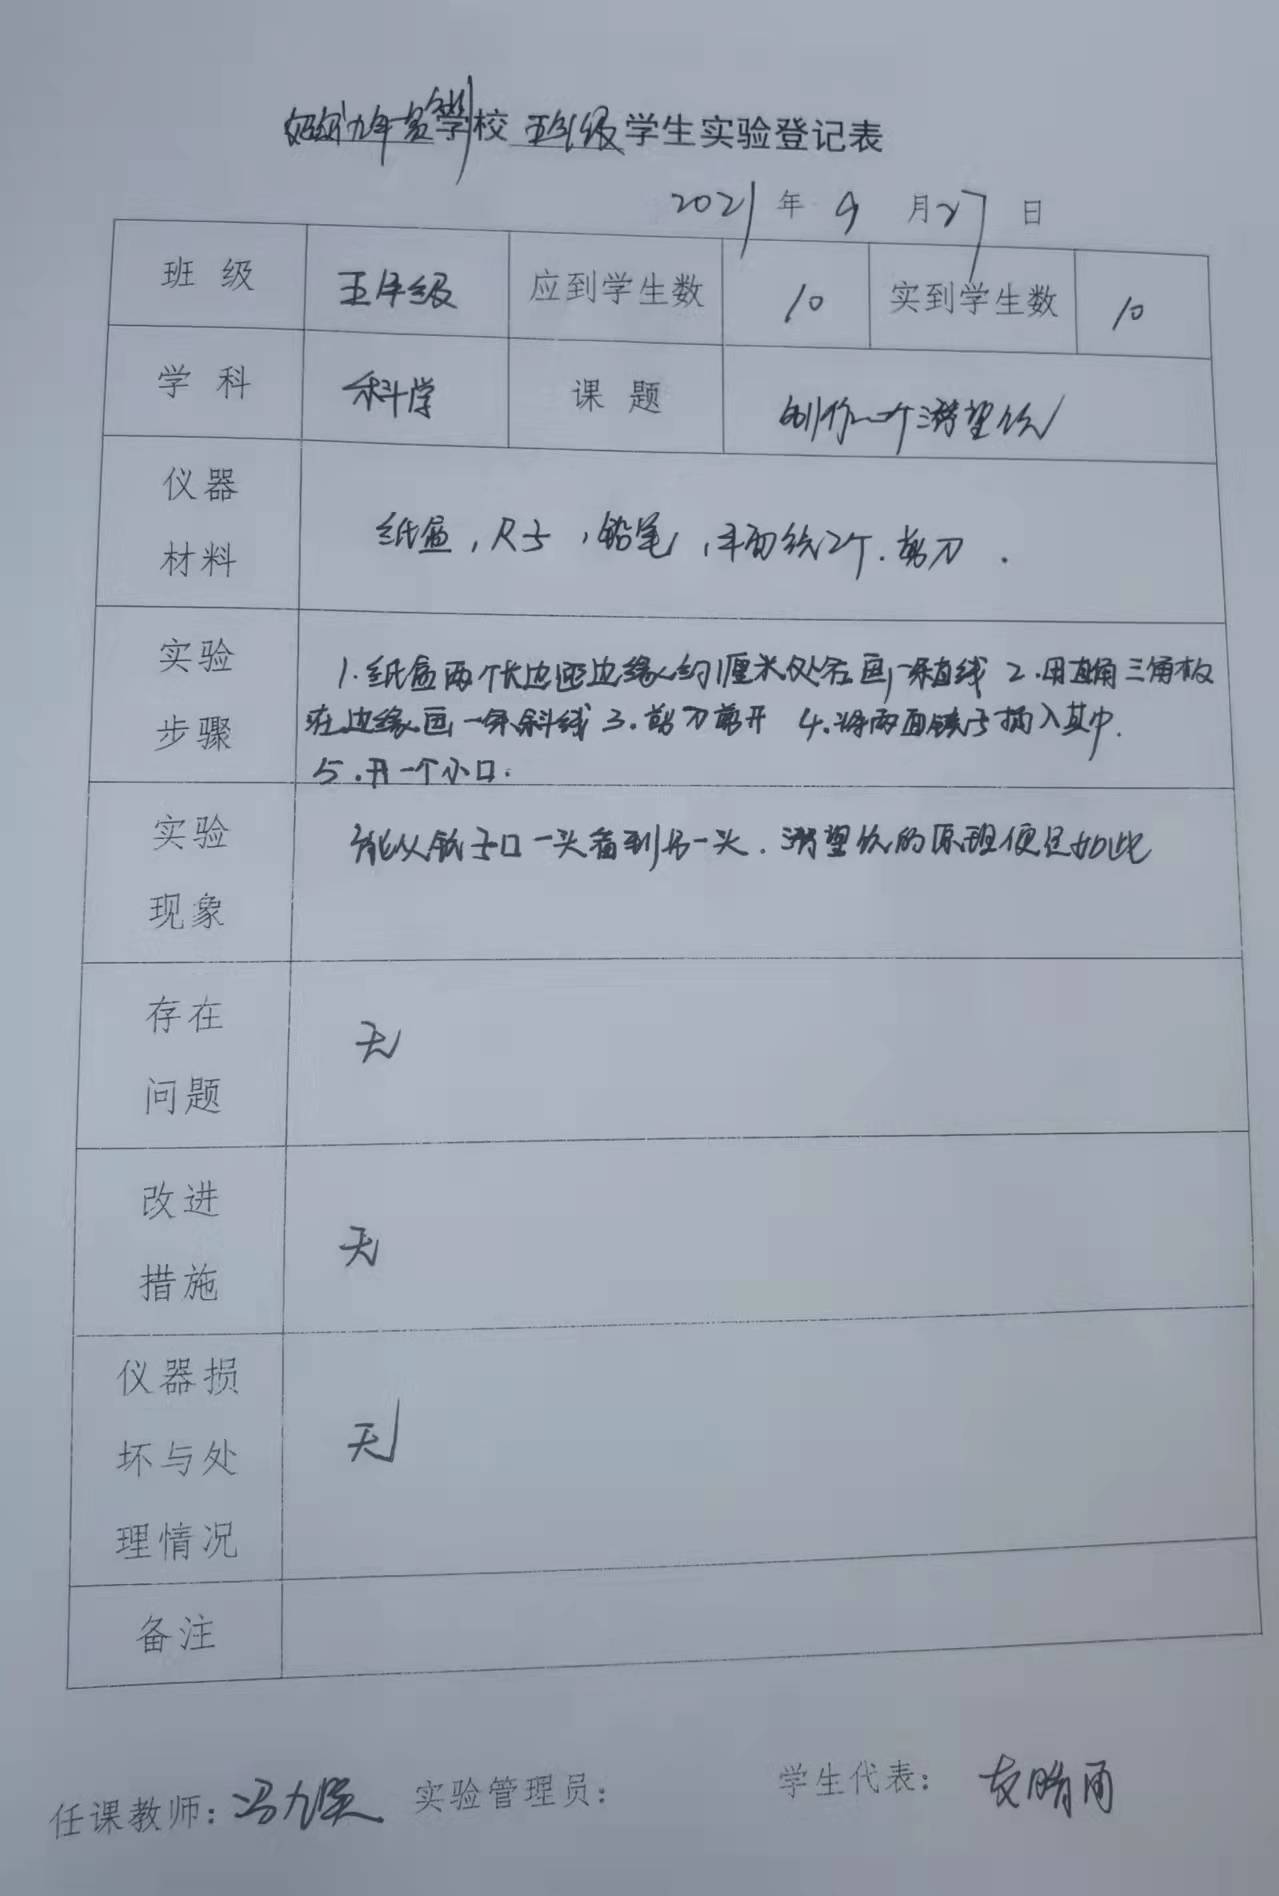 九年 学校 五年级 学生实验登记表
2021 年 9 月 27 日
班 级 五年级 应到学生数 10 实到学生数 10
学 科 科学 课 题 制作一个潜望镜
仪器
材料
纸盒，尺子，铅笔，平面镜2个.剪刀.
实验
步骤
1.纸盒两个长边距边缘约1厘米处各画一条直线 2.用直角三角板
在边缘画一条斜线 3.剪刀剪开 4.将两面镜子插入其中.
5.开一个小口.
实验
现象
能从镜子口一头看到另一头.潜望镜的原理便是如此
存在
问题
无
改进
措施
无
仪器损
坏与处
理情况
无
备注
任课教师：冯九 实验管理员： 学生代表：